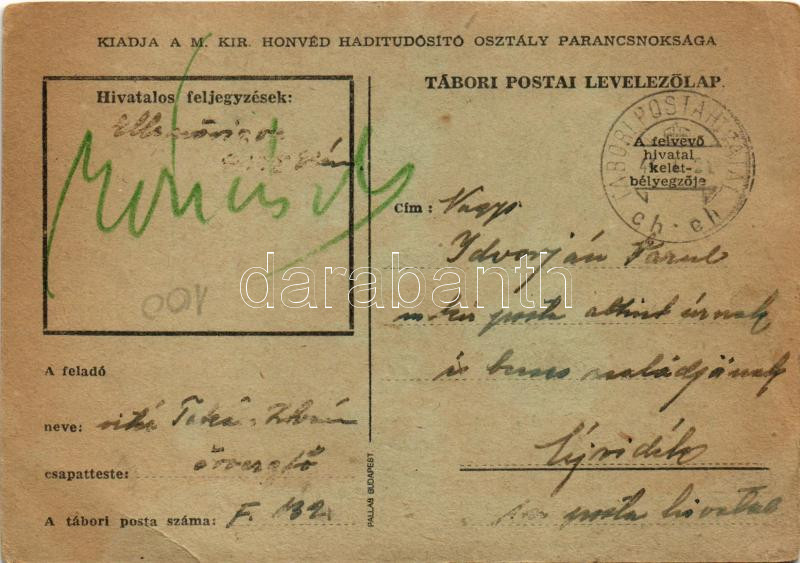 KIADJA A M. KIR. HONVÉD HADITUDÓSÍTÓ OSZTÁLY PARANCSNOKSÁGA
TÁBORI POSTAI LEVELEZŐLAP
Hivatalos feljegyzések:
100
TÁBORI POSTAHIVATAL
A felvevő
hivatal
kelet-
bélyegzője
ch - ch
Cím : Nagys
posta altiszt úrnak
és családjának
Újvidék
posta hivatal
darabanth
A feladó
neve: vité Zoltán
csapatteste: őrvezető
A tábori posta száma: F. 132
PALLAS BUDAPEST